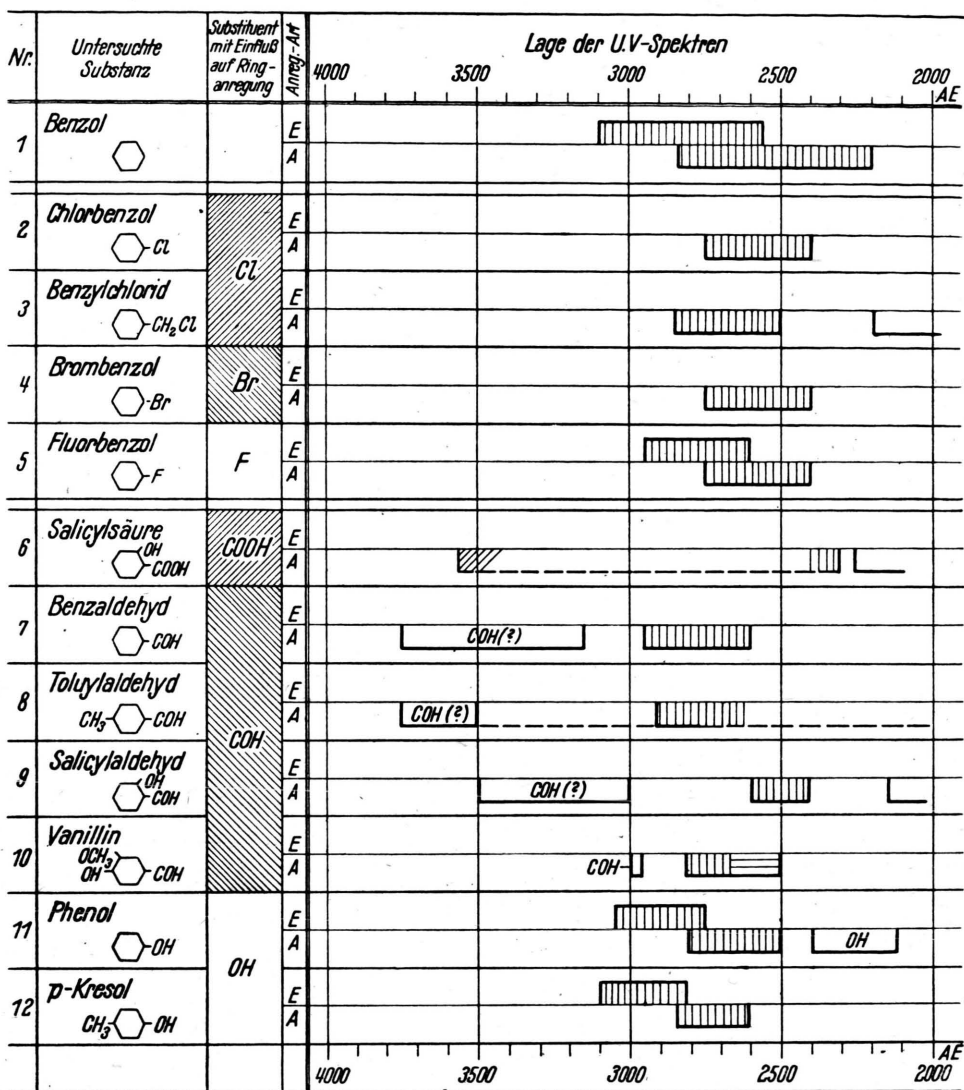 Nr.
Untersuchte
Substanz
Substituent
mit Einfluß
auf Ring-
anregung
Anreg.-Art
Lage der U.V-Spektren
4000 3500 3000 2500 2000
AE
1 Benzol E
A
2 Chlorbenzol E
Cl A
Cl
3 Benzylchlorid E
CH2Cl A
4 Brombenzol E
Br Br A
5 Fluorbenzol E
F F A
6 Salicylsäure E
OH
COOH COOH A
7 Benzaldehyd E
COH A COH(?)
8 Toluylaldehyd E
CH3 COH A COH(?)
COH
9 Salicylaldehyd E
OH
COH A COH(?)
10 Vanillin E
OCH3
OH COH A COH
11 Phenol E
OH A OH
OH
12 p-Kresol E
CH3 OH A
AE
4000 3500 3000 2500 2000